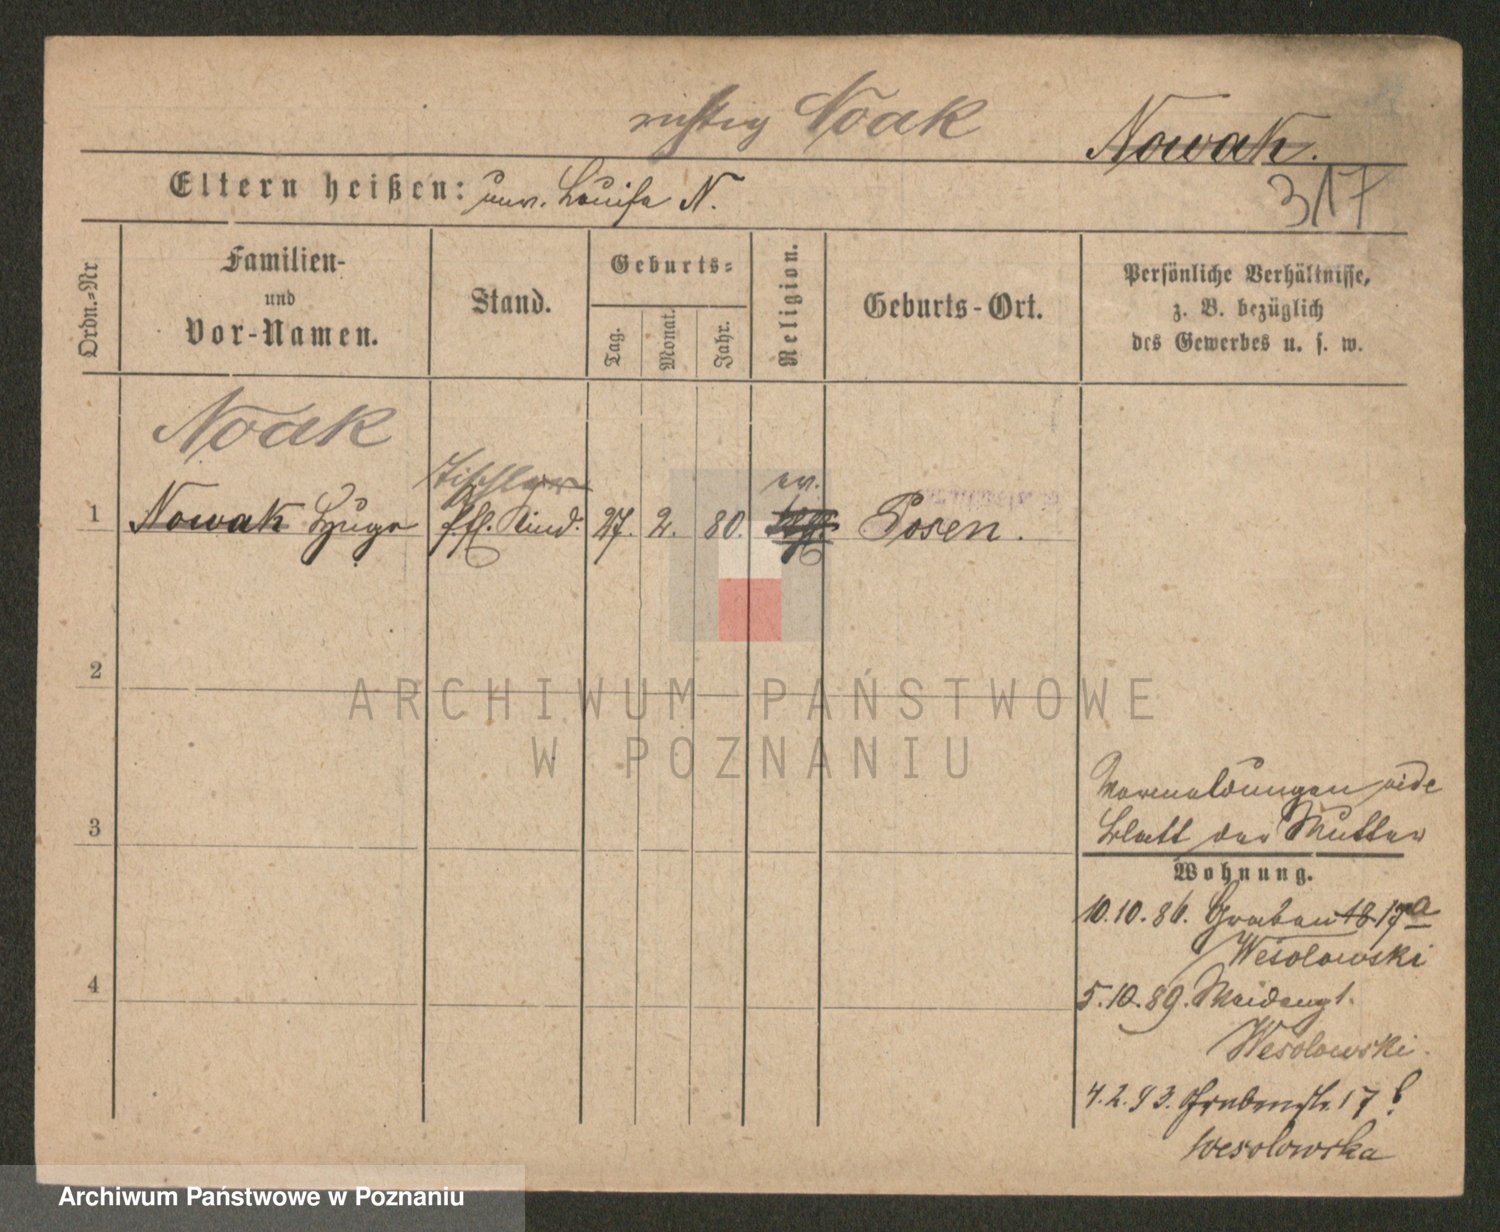 richtig Noak
Nowak.
Eltern heißen: unv. Louise N.
317
Ordn.-Nr
Familien-
und
Vor-Namen.
Stand.
Geburts-
Tag.
Monat.
Jahr.
Religion.
Geburts-Ort.
Persönliche Verhältnisse,
z. B. bezüglich
des Gewerbes u. s. w.
Noak
Tischler
ev.
1 Nowak Hugo Kind. 27. 2. 80. Posen.
2
ARCHIWUM PAŃSTWOWE
W POZNANIU
3
4
vide
Blatt der Mutter
Wohnung.
10.10.86. Graben 18. 17a
Wesolowski
5.10.89.
Wesolowski.
4.2.93. Grabenstr. 17
Wesolowska
Archiwum Państwowe w Poznaniu